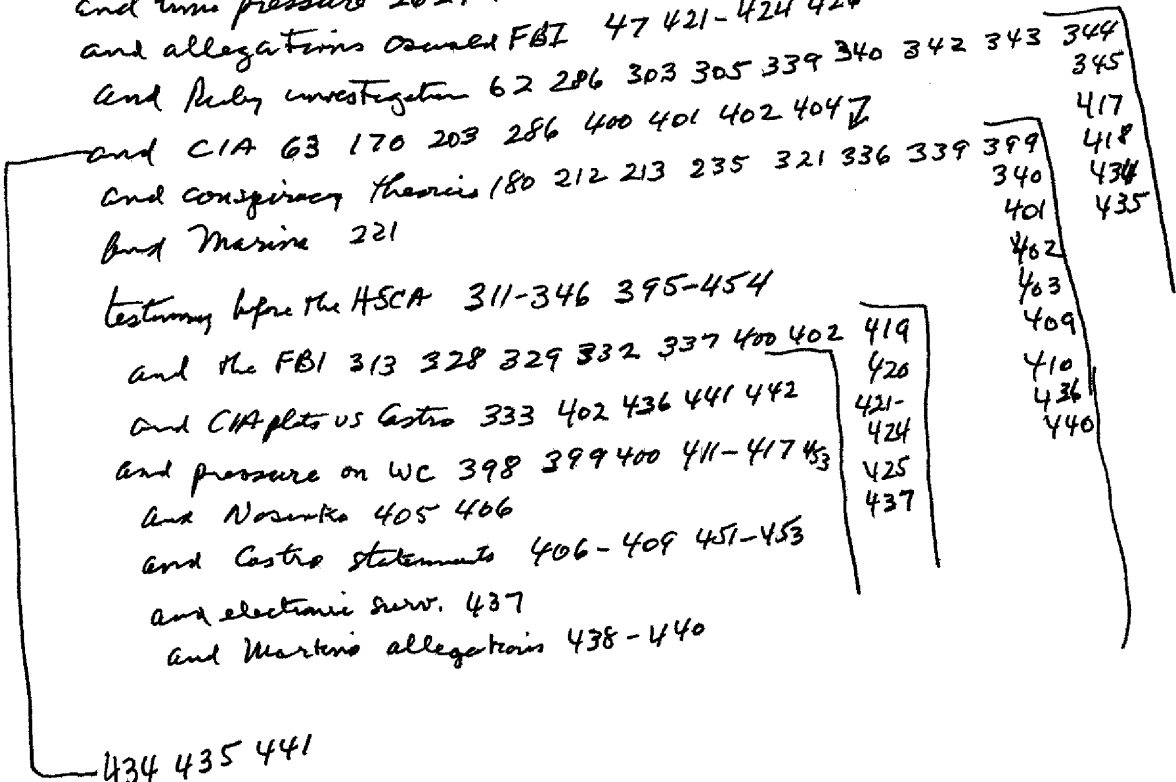 and time pressure
and allegations Oswald FBI 47 421-424
and Ruby investigation 62 286 303 305 339 340 342 343 344
345
417
418
434
435
and CIA 63 170 203 286 400 401 402 404
and conspiracy theories 180 212 213 235 321 336 339 399
340
401
402
403
409
410
436
440
and Marina 221
testimony before the HSCA 311-346 395-454
and the FBI 313 328 329 332 337 400 402 419
420
421-
424
425
437
and CIA plots vs Castro 333 402 436 441 442
and pressure on WC 398 399 400 411-417 453
and Nosenko 405 406
and Castro statements 406-409 451-453
and electronic surv. 437
and Martino allegations 438-440
434 435 441